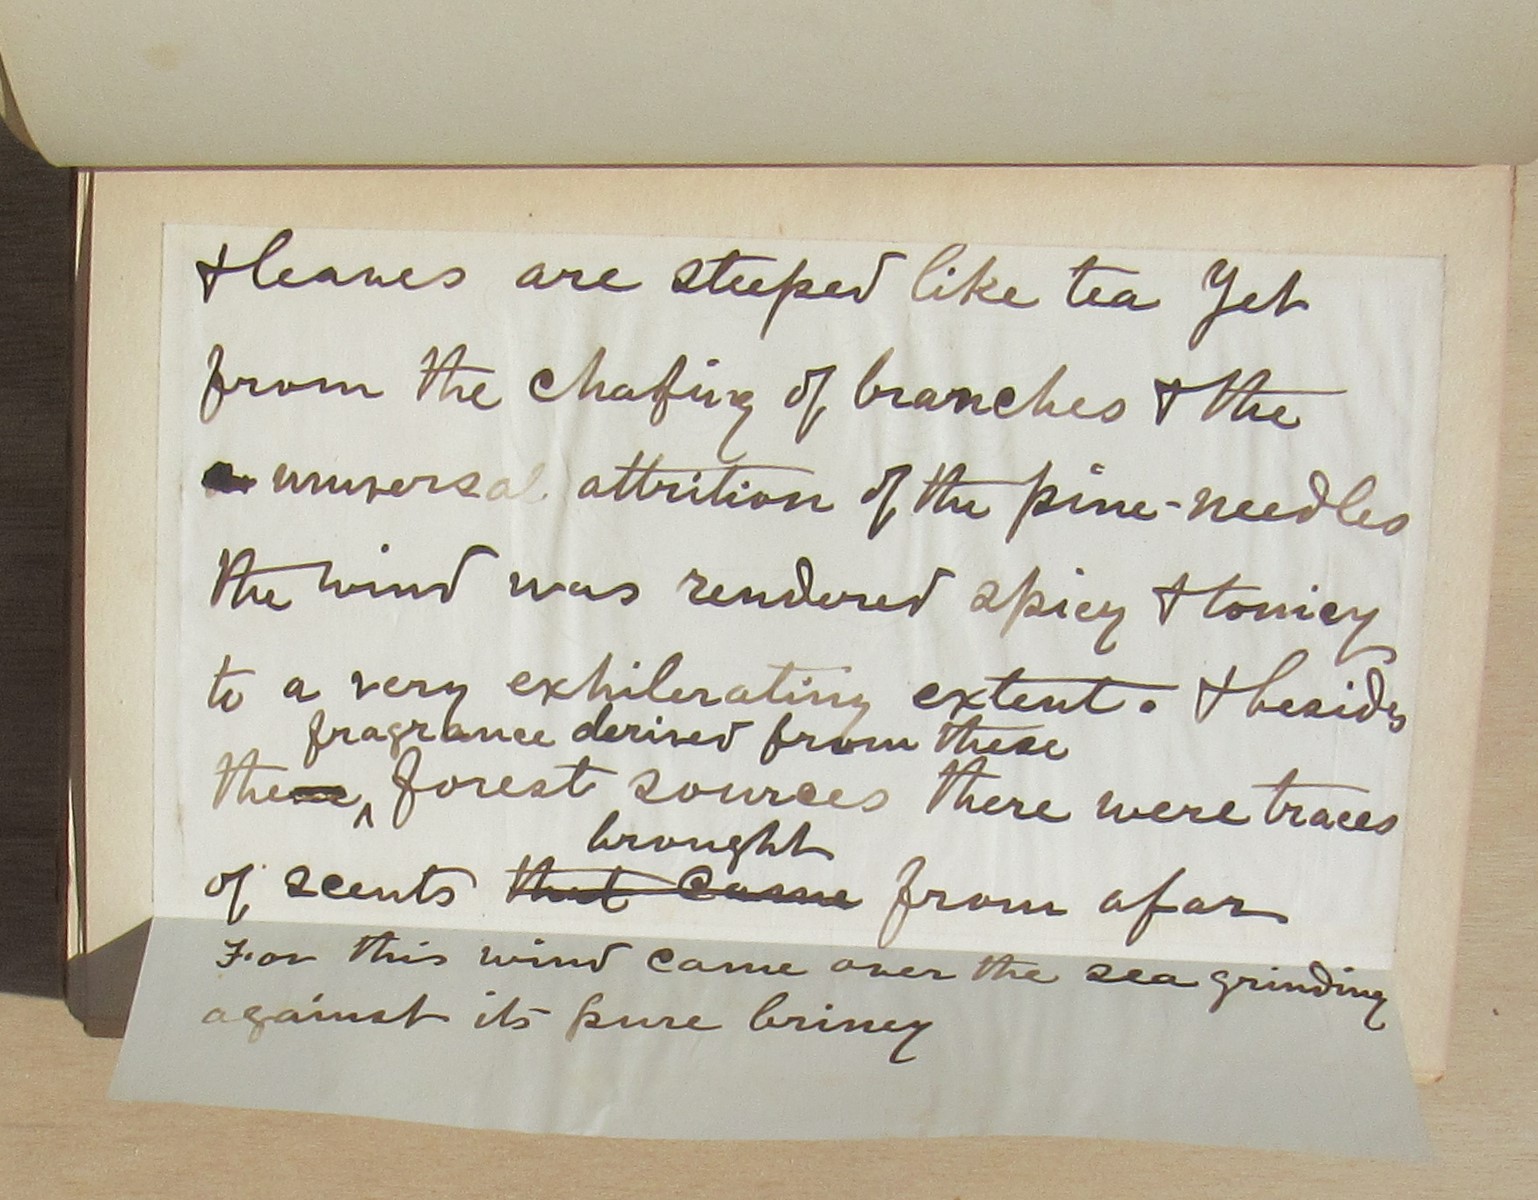 & leaves are steeped like tea Yet
from the chafing of branches & the
universal attrition of the pine-needles
the wind was rendered spicy & tonicy
to a very exhilerating extent. & besides
fragrance derived from these
the forest sources there were traces
brought
of scents that came from afar
For this wind came over the sea grinding
against its pure briney